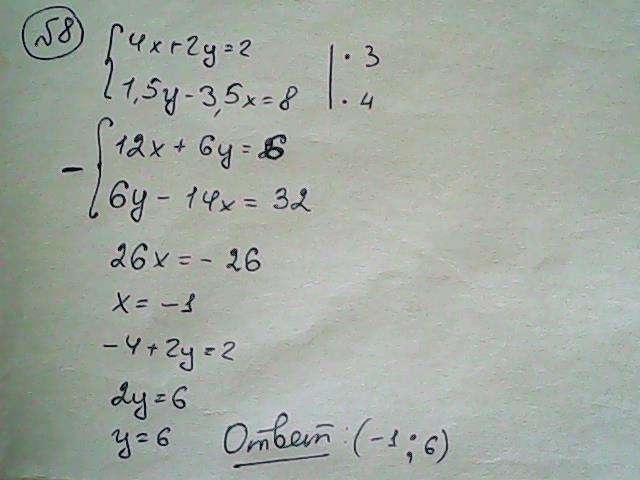 №8
4x+2y=2 | · 3
1,5y-3,5x=8 | · 4
- 12x+6y=6
6y-14x=32
26x=-26
x=-1
-4+2y=2
2y=6
y=6 Ответ: (-1; 6)